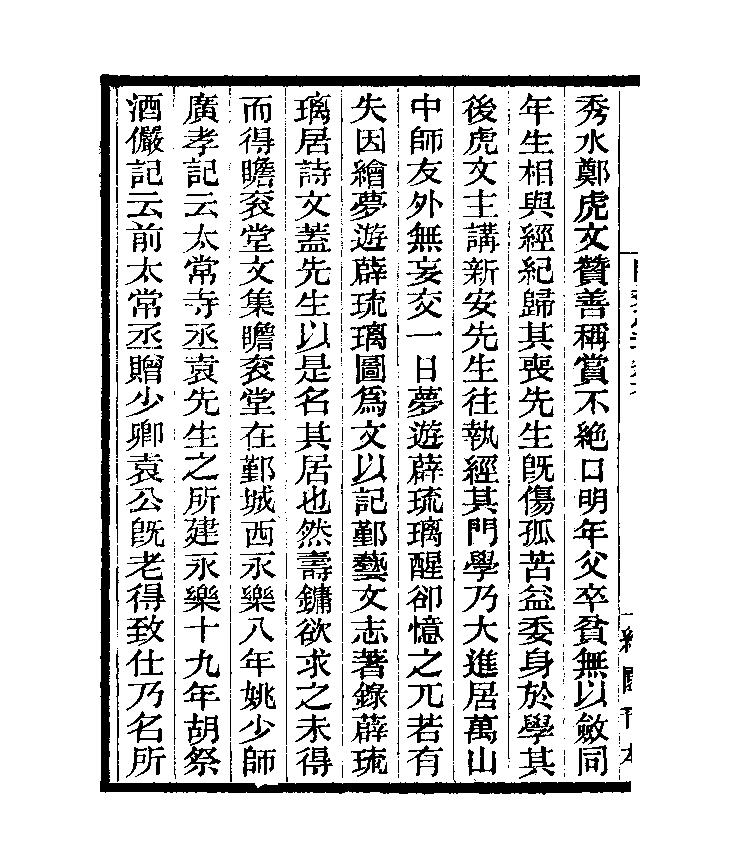 秀水鄭虎文贊善稱賞不絕口明年父卒貧無以斂同
年生相與經紀歸其喪先生旣傷孤苦益委身於學其
後虎文主講新安先生往執經其門學乃大進居萬山
中師友外無妄交一日夢遊薜琉璃醒卻憶之兀若有
失因繪夢遊薜琉璃圖爲文以記鄞藝文志著錄薜琉
璃居詩文蓋先生以是名其居也然壽鏞欲求之未得
而得瞻袞堂文集瞻袞堂在鄞城西永樂八年姚少師
廣孝記云太常寺丞袁先生之所建永樂十九年胡祭
酒儼記云前太常丞贈少卿袁公旣老得致仕乃名所